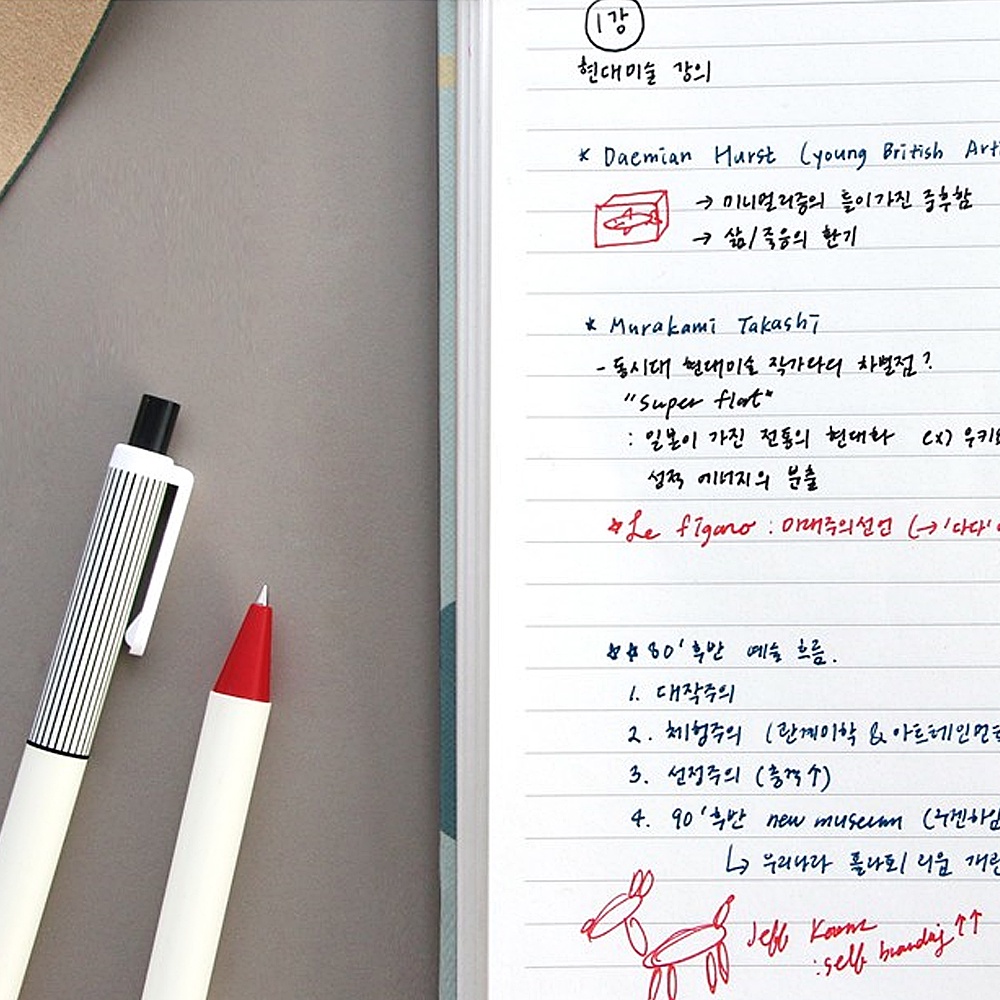 1강
현대미술 강의
* Daemian Hurst (young British Arti
→ 미니멀리즘의 틀이가진 중후함
→ 삶/죽음의 환기
* Murakami Takashi
- 동시대 현대미술 작가와의 차별점?
"super flat"
: 일본이 가진 전통의 현대화 ex) 우키요
성적 에너지의 분출
*Le figaro : 미래주의선언 (→'다다'
**80'후반 예술 흐름.
1. 대작주의
2. 체험주의 (관계미학 & 아트테인먼트
3. 선정주의 (충격↑)
4. 90'후반 new museum (구겐하임
↳ 우리나라 리움 개관
Jeff Koons
:self branding ↑↑